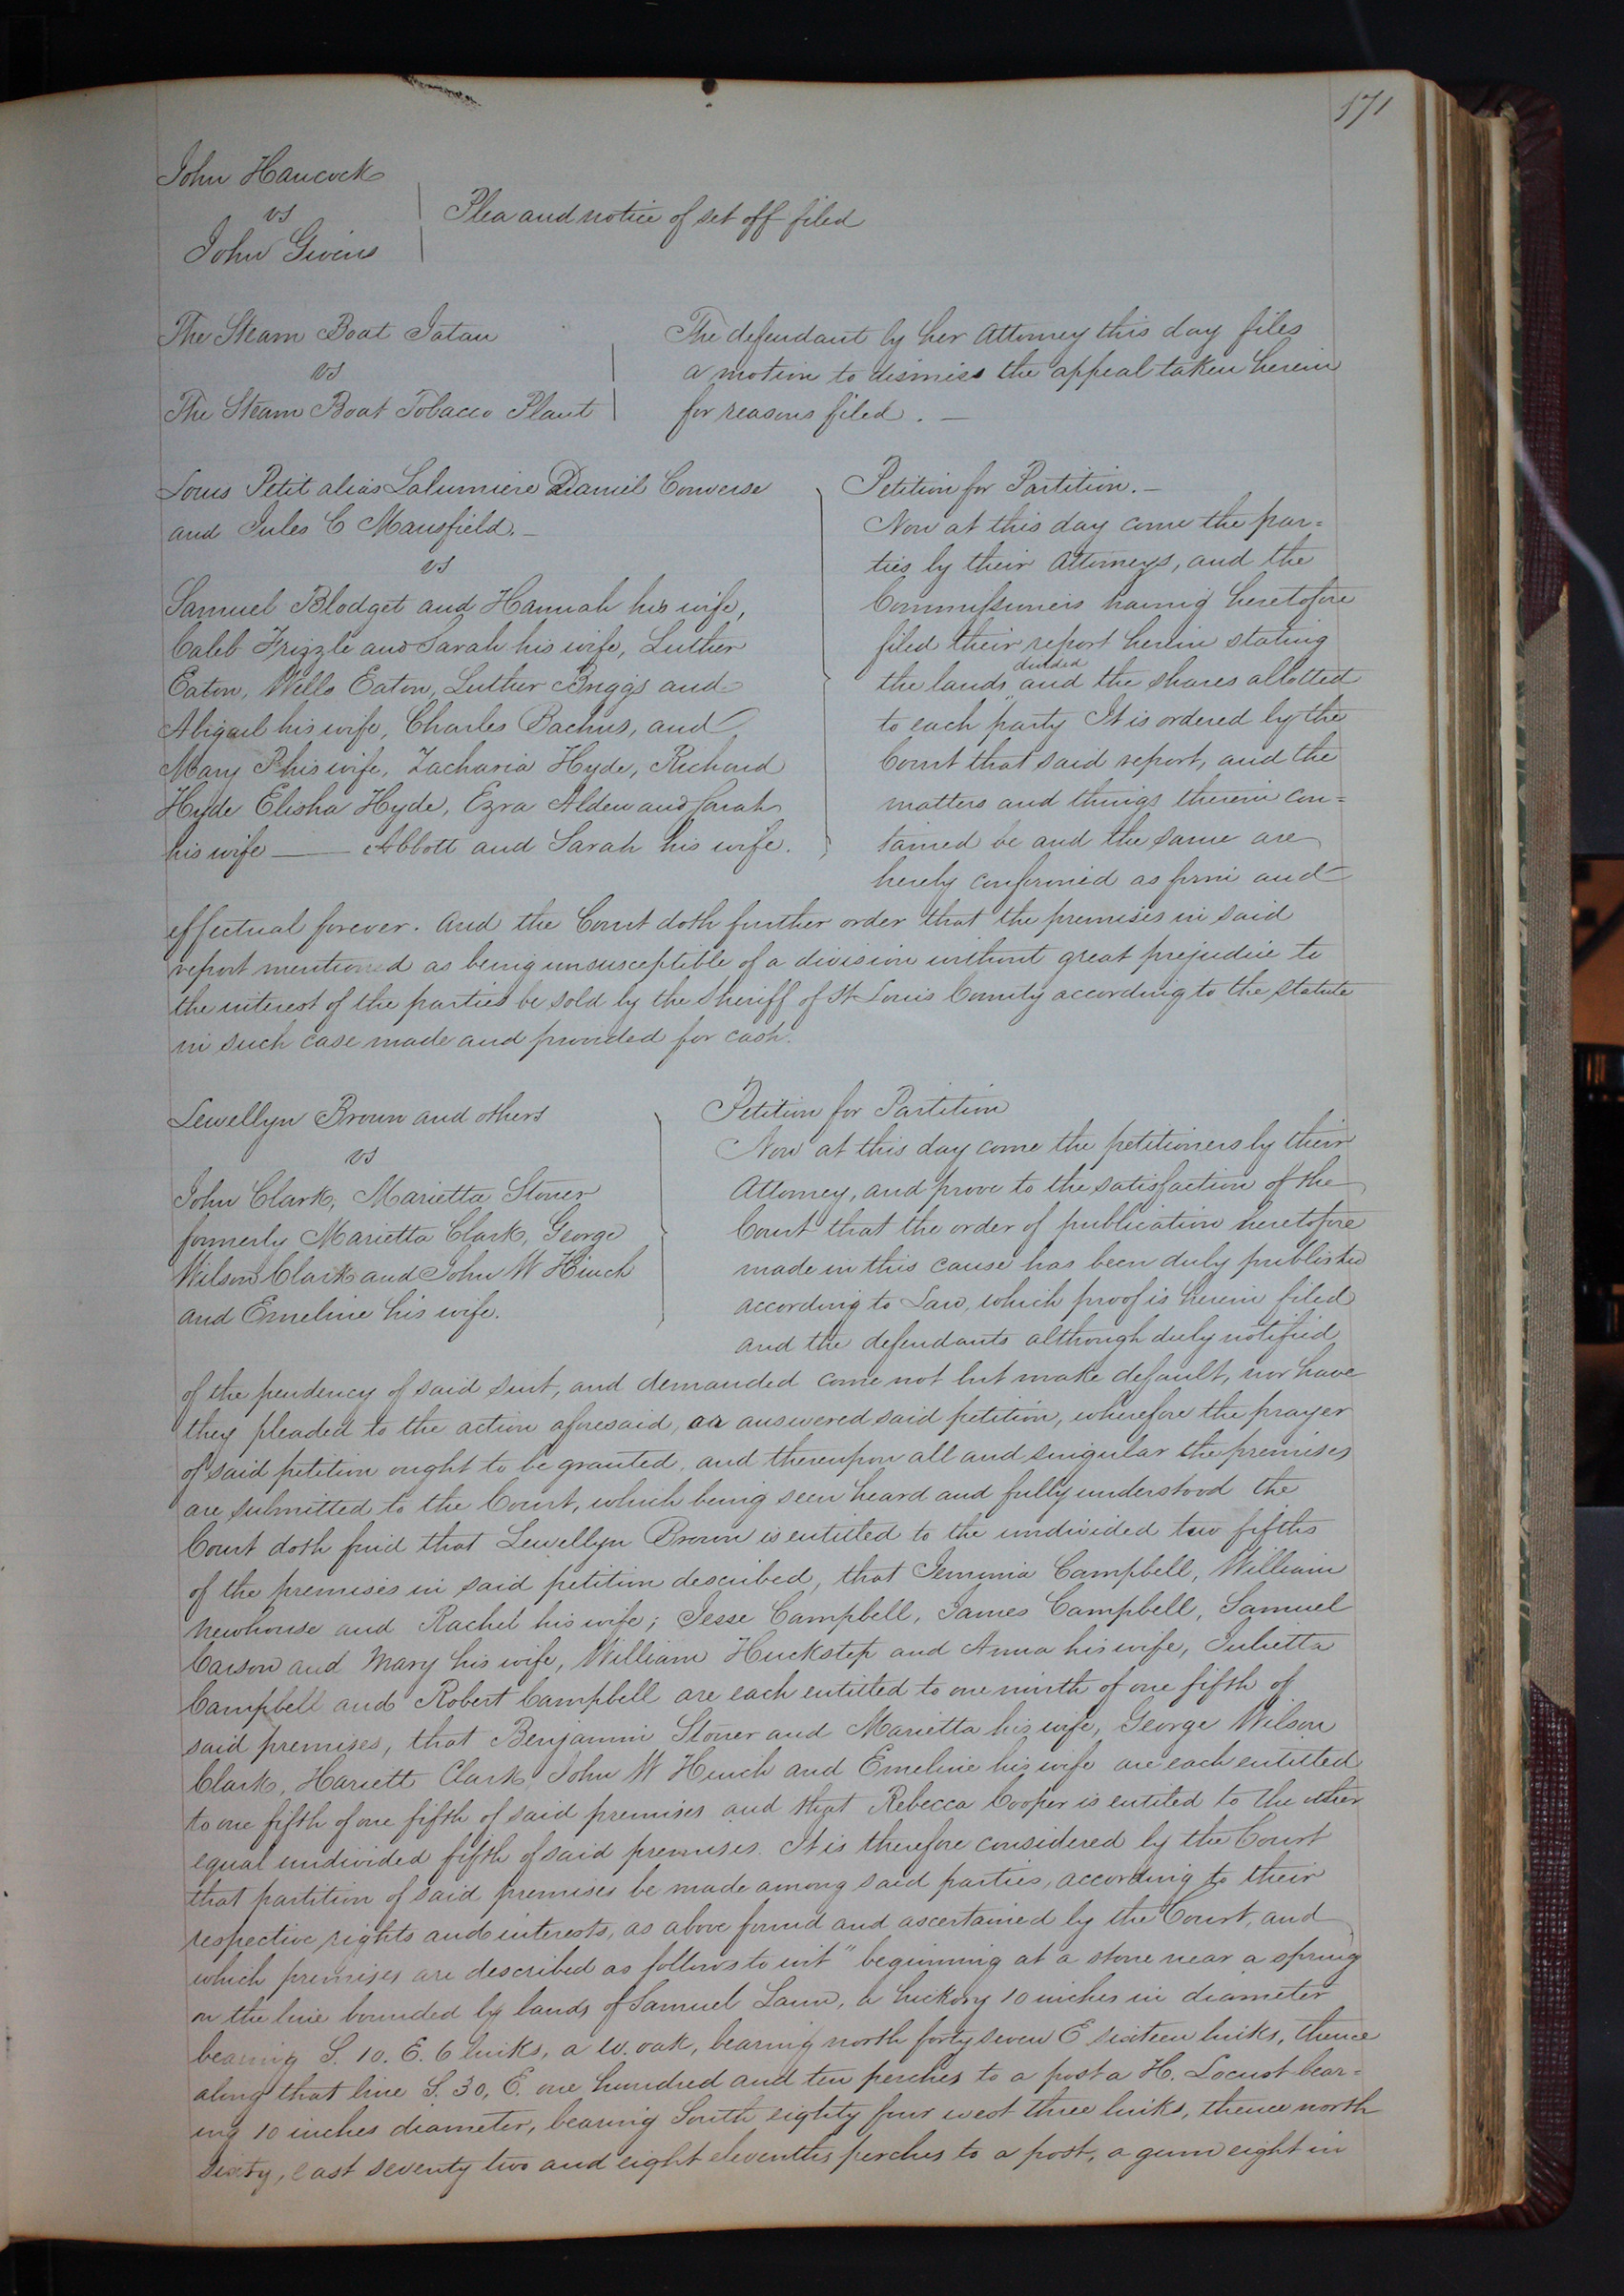 171
John Hancock
vs
John Givens
Plea and notice of set off filed
The Steam Boat Iatan
vs
The Steam Boat Tobacco Plant
The defendant by her Attorney this day files
a motion to dismiss the appeal taken herein
for reasons filed. —
Louis Petit alias Lalumiere Daniel Converse
and Jules C Mansfield. —
vs
Samuel Blodget and Hannah his wife,
Caleb Frizzle and Sarah his wife, Luther
Eaton, Wells Eaton, Luther Briggs and
Abigail his wife, Charles Bachus, and
Mary P his wife, Zacharia Hyde, Richard
Hyde Elisha Hyde, Ezra Alden and Sarah
his wife —— Abbott and Sarah his wife.
Petition for Partition. —
Now at this day come the par=
ties by their Attorneys, and the
Commissioners having heretofore
filed their report herein stating
the lands divided and the shares allotted
to each party It is ordered by the
Court that said report, and the
matters and things therein con=
tained be and the same are
hereby confirmed as firm and
effectual forever. And the Court doth further order that the premises in said
report mentioned as being unsusceptible of a division without great prejudice to
the interest of the parties be sold by the Sheriff of St Louis County according to the statute
in such case made and provided for cash.
Lewellyn Brown and others
vs
John Clark, Marietta Stoner
formerly Marietta Clark, George
Wilson Clark and John W Hinch
and Emeline his wife.
Petition for Partition
Now at this day come the petitioners by their
Attorney, and prove to the satisfaction of the
Court that the order of publication heretofore
made in this cause has been duly published
according to Law, which proof is herein filed
and the defendants although duly notified
of the pendency of said suit, and demanded come not but make default, nor have
they pleaded to the action aforesaid, or answered said petition, wherefore the prayer
of said petition ought to be granted, and thereupon all and singular the premises
are submitted to the Court, which being seen heard and fully understood the
Court doth find that Lewellyn Brown is entitled to the undivided two fifths
of the premises in said petition described, that Jemima Campbell, William
Newhouse and Rachel his wife; Jesse Campbell, James Campbell, Samuel
Carson and Mary his wife, William Huckstep and Anna his wife, Julietta
Campbell and Robert Campbell are each entitled to one ninth of one fifth of
said premises, that Benjamin Stoner and Marietta his wife, George Wilson
Clark, Hariett Clark, John W Hinch and Emeline his wife are each entitled
to one fifth of one fifth of said premises and that Rebecca Cooper is entitled to the other
equal undivided fifth of said premises. It is therefore considered by the Court
that partition of said premises be made among said parties, according to their
respective rights and interests, as above found and ascertained by the Court, and
which premises are described as follows to wit "beginning at a stone near a spring
on the line bounded by lands of Samuel Lann, a hickory 10 inches in diameter
bearing S. 10. E. 6 links, a W. oak, bearing north forty seven E sixteen links, thence
along that line S. 30, E. one hundred and ten perches to a post a H. Locust bear=
ing 10 inches diameter, bearing South eighty four west three links, thence north
sixty, east seventy two and eight elevenths perches to a post, a gum eight in